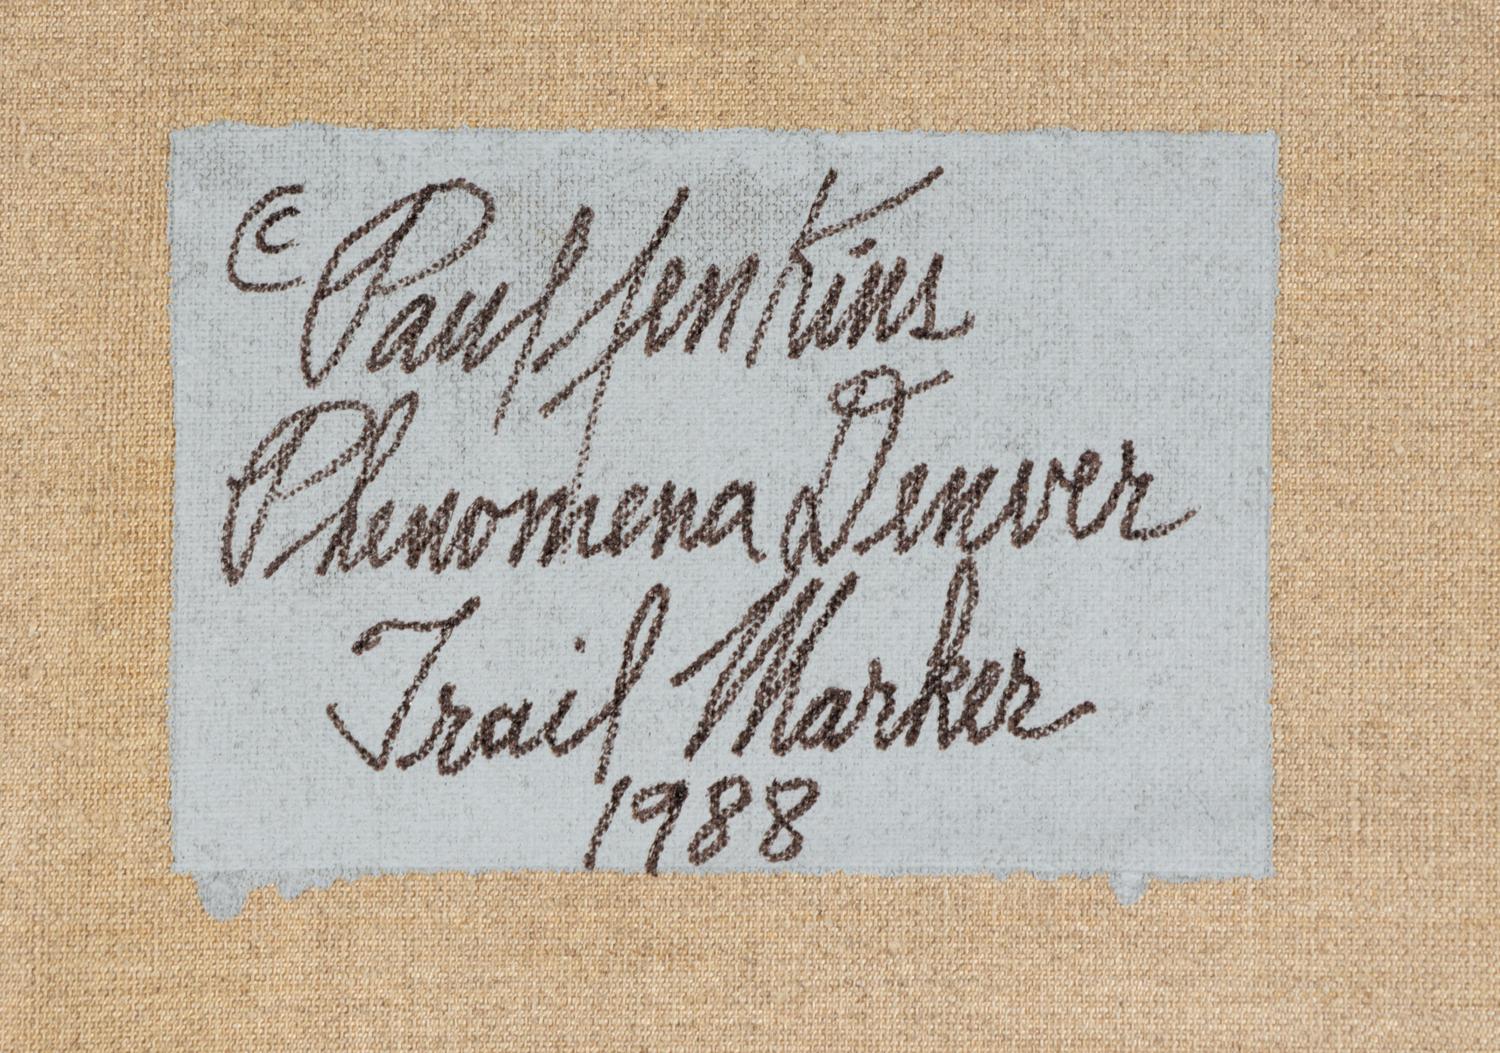 © Paul Jenkins
Phenomena Denver
Trail Marker
1988